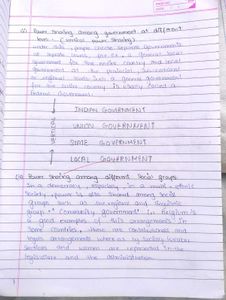 (ii) Power sharing among government at different
level - (vertical power sharing)
under this, people create separate governments
at separate levels, for ex, a general
government for the entire country and local
government at the provincial, sub-national
or regional levels such a general government
for the entire country is usually called a
Federal Government.
INDIAN GOVERNMENT
UNION GOVERNMENT
STATE GOVERNMENT
LOCAL GOVERNMENT
(iii) Power sharing among different social groups
In a democracy, especially, in a multi-ethnic
society, power is also shared among social
groups such as the religious and linguistic
group. "Community government" in Belgium is
a good example of this arrangement. In
some countries, there are constitutional and
legal arrangements where as by socially weaker
sections and women are represented in the
legislature and the administration.